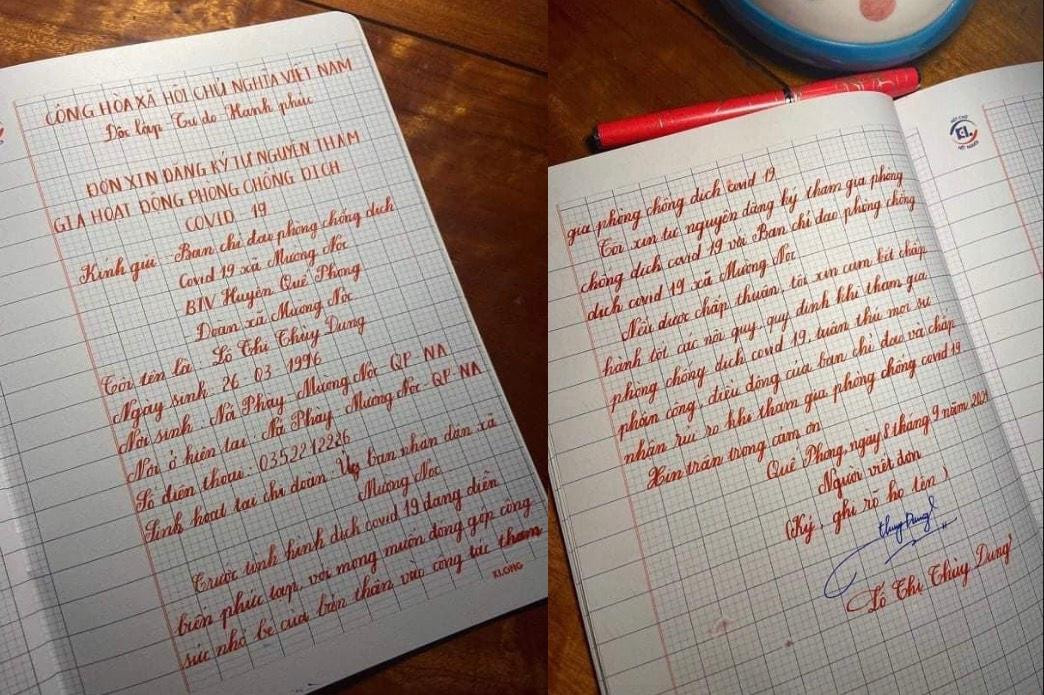 CỘNG HÒA XÃ HỘI CHỦ NGHĨA VIỆT NAM
Độc lập Tự do Hạnh phúc
ĐƠN XIN ĐĂNG KÝ TỰ NGUYỆN THAM
GIA HOẠT ĐỘNG PHÒNG CHỐNG DỊCH
COVID 19
Kính gửi Ban chỉ đạo phòng chống dịch
Covid 19 xã Mường Nọc
BTV Huyện Quế Phong
Đoàn xã Mường Nọc
Tôi tên là Lô Thị Thùy Dung
Ngày sinh 26 03 1996
Nơi sinh Nà Phày Mường Nọc QP NA
Nơi ở hiện tại: Nà Phày - Mường Nọc - QP - NA
Số điện thoại: 035221 2226
Sinh hoạt tại chi đoàn Ủy ban nhân dân xã
Mường Nọc
Trước tình hình dịch covid 19 đang diễn
biến phức tạp, với mong muốn đóng góp công
sức nhỏ bé của bản thân vào công tác tham
KLONG
gia phòng chống dịch covid 19
Tôi xin tự nguyện đăng ký tham gia phòng
chống dịch covid 19 và Ban chỉ đạo phòng chống
dịch covid 19 xã Mường Nọc
Nếu được chấp thuận, tôi xin cam kết chấp
hành tốt các nội quy, quy định khi tham gia
phòng chống dịch covid 19, tuân thủ mọi sự
phân công, điều động của ban chỉ đạo và chấp
nhận rủi ro khi tham gia phòng chống covid 19
Xin trân trọng cảm ơn
Quế Phong, ngày 8 tháng 9 năm 2021
Người viết đơn
(Ký, ghi rõ họ tên)
thuyDung
Lô Thị Thùy Dung